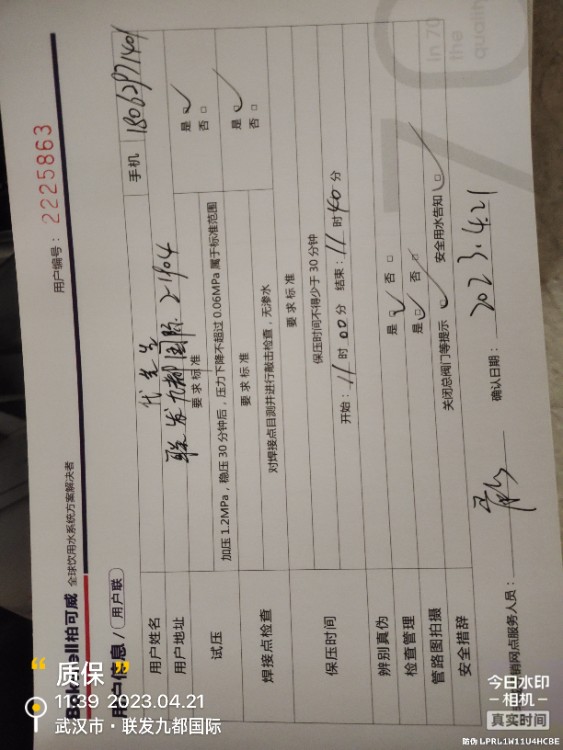 柏可威 全球饮用水系统方案解决者
用户编号：2225863
用户信息/ 用户联
用户姓名 代先生 手机 18062971401
用户地址 联发九都国际 2-1904
试压 要求标准
加压1.2MPa，稳压30分钟后，压力下降不超过0.06MPa属于标准范围
是 □ ✓
否 □
焊接点检查 要求标准
对焊接点目测并进行敲击检查，无渗水
是 □ ✓
否 □
保压时间 要求标准
保压时间不得少于30分钟
开始：11时00分 结束：11时40分
辨别真伪 是 □ ✓ 否 □
检查管理 是 □ ✓ 否 □
管路图拍摄
安全措辞 关闭总阀门等提示 ✓ 安全用水告知 □ ✓
销网点服务人员：
确认日期：2023.4.21
In 70
the
quality
70
“质保”
11:39 2023.04.21
武汉市·联发九都国际
今日水印
相机
真实时间
防伪 LPRL1W11U4HCBE